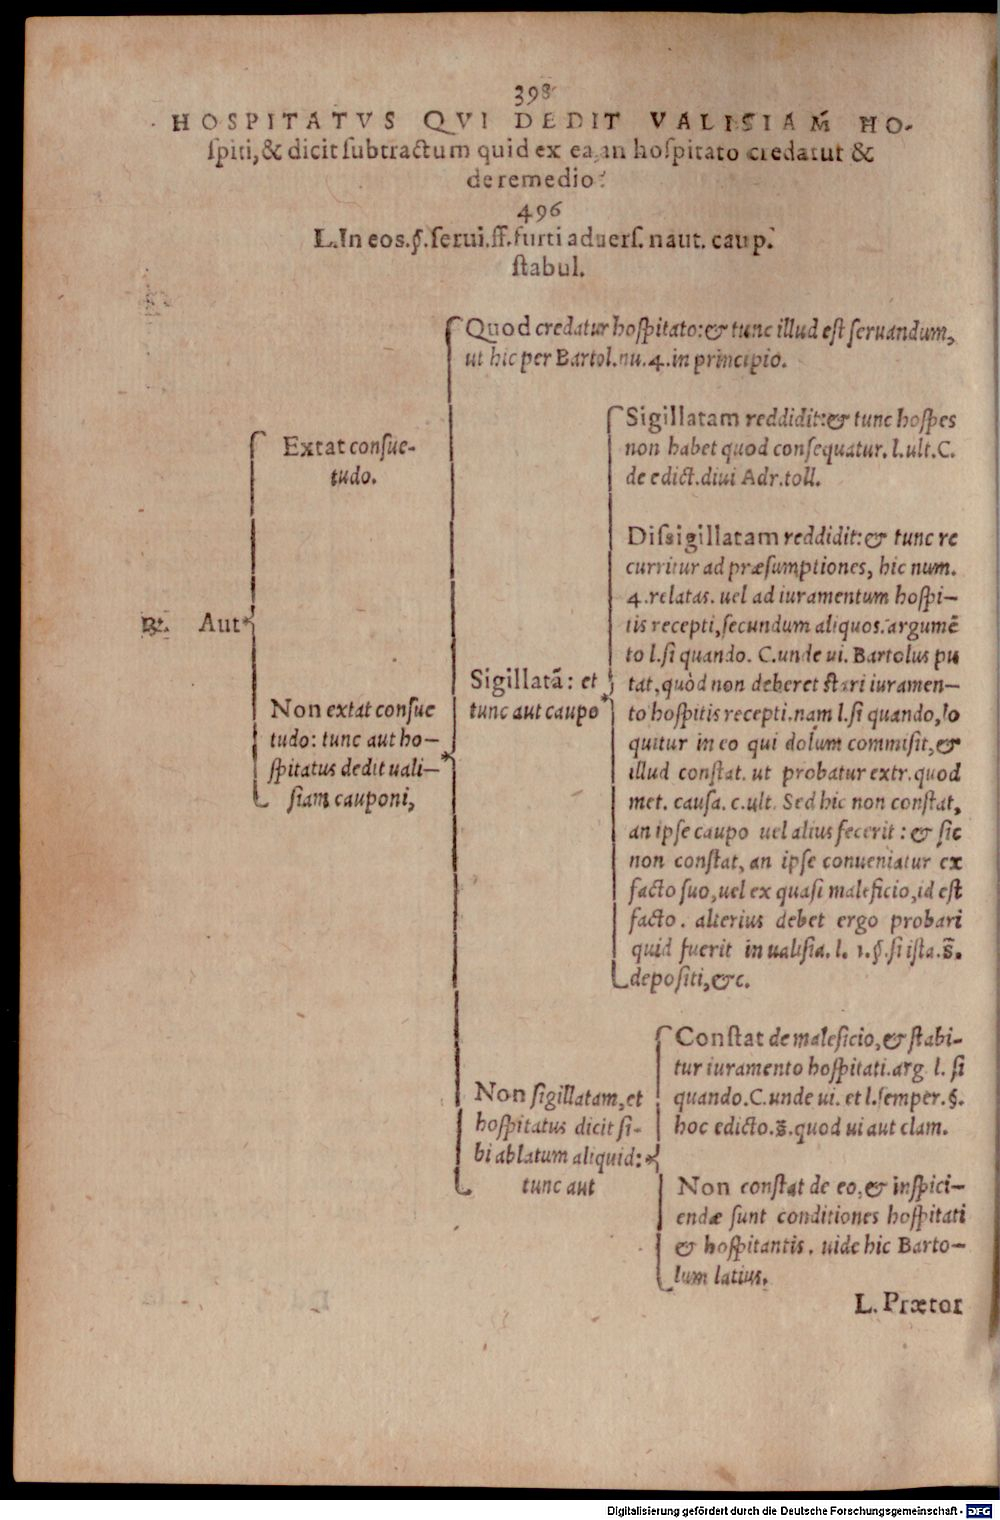 398
HOSPITATVS QVI DEDIT VALISIAM HO-
spiti, & dicit subtractum quid ex ea, an hospitato credatut &
de remedio?
496
L. In eos. §. serui. ff. furti aduers. naut. caup.
stabul.
Quod credatur hospitato: & tunc illud est seruandum,
ut hic per Bartol. nu. 4. in principio.
Extat consue-
tudo.
Sigillatam reddidit: & tunc hospes
non habet quod consequatur. l. ult. C.
de edict. diui Adr. toll.
Dissigillatam reddidit: & tunc re
curritur ad præsumptiones, hic num.
4. relatas. uel ad iuramentum hospi-
tis recepti, secundum aliquos. argumẽ
to l. si quando. C. unde ui. Bartolus pu
tat, quòd non deberet stari iuramen-
to hospitis recepti. nam l. si quando, lo
quitur in eo qui dolum commisit, &
illud constat. ut probatur extr. quod
met. causa. c. ult. Sed hic non constat,
an ipse caupo uel alius fecerit: & sic
non constat, an ipse conueniatur ex
facto suo, uel ex quasi maleficio, id est
facto. alterius debet ergo probari
quid fuerit in ualisia. l. 1. §. si ista. s̃.
depositi, &c.
Aut
Sigillatã: et
tunc aut caupo
Non extat consue
tudo: tunc aut ho-
spitatus dedit uali-
siam cauponi,
Non sigillatam, et
hospitatus dicit si-
bi ablatum aliquid:
tunc aut
Constat de maleficio, & stabi-
tur iuramento hospitati. arg. l. si
quando. C. unde ui. et l. semper. §.
hoc edicto. s̃. quod ui aut clam.
Non constat de eo, & inspici-
endæ sunt conditiones hospitati
& hospitantis. uide hic Barto-
lum latius.
L. Prætor
Digitalisierung gefördert durch die Deutsche Forschungsgemeinschaft - DFG